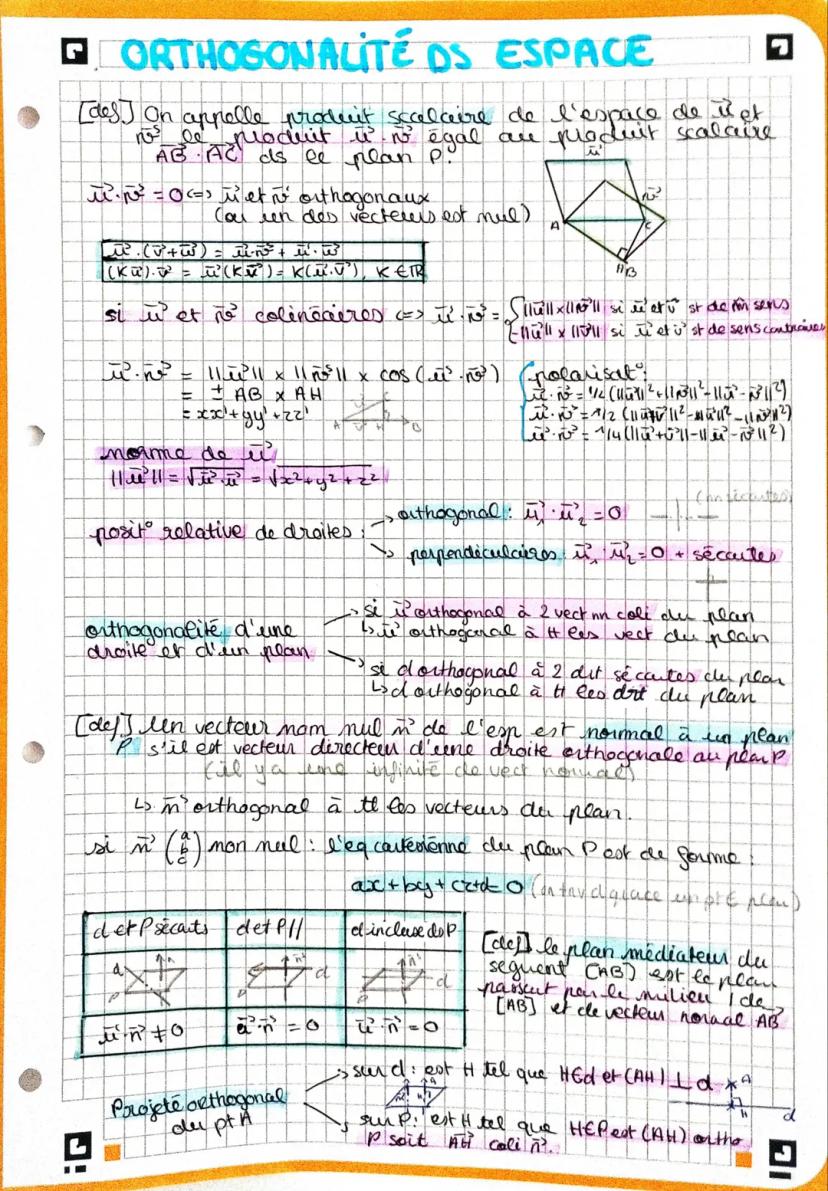 ORTHOGONALITÉ DS ESPACE
[def] On appelle produit scalaire de l'espace de u⃗ et
v⃗ le produit u⃗ · v⃗ égal au produit scalaire
AB⃗ · AC⃗ ds le plan P.
u⃗
v⃗
A
C
B
u⃗ · v⃗ = 0 <=> u⃗ et v⃗ orthogonaux
(ou un des vecteurs est nul)
u⃗ · (v⃗ + w⃗) = u⃗ · v⃗ + u⃗ · w⃗
(K u⃗) · v⃗ = u⃗ (K v⃗) = K (u⃗ · v⃗), K ∈ ℝ
si u⃗ et v⃗ colinéaires <=> u⃗ · v⃗ = { ||u⃗|| x ||v⃗|| si u⃗ et v⃗ st de m̂ sens
-||u⃗|| x ||v⃗|| si u⃗ et v⃗ st de sens contraires
u⃗ · v⃗ = ||u⃗|| x ||v⃗|| x cos (u⃗ · v⃗)
= ± AB x AH
= xx' + yy' + zz'
A H B
polarisat°:
u⃗ · v⃗ = 1/2 (||u⃗||² + ||v⃗||² - ||u⃗ - v⃗||²)
u⃗ · v⃗ = 1/2 (||u⃗+v⃗||² - ||u⃗||² - ||v⃗||²)
u⃗ · v⃗ = 1/4 (||u⃗+v⃗|| - ||u⃗ - v⃗||²)
norme de u⃗
||u⃗|| = √u⃗ · u⃗ = √x² + y² + z²
posit° relative de droites :
-> orthogonal : u⃗₁ · u⃗₂ = 0
(nn sécantes)
-> perpendiculaires u⃗₁ · u⃗₂ = 0 + sécantes
orthogonalité d'une
droite et d'un plan
-> si u⃗ orthogonal à 2 vect nn coli du plan
↳ u⃗ orthogonal à tt les vect du plan
-> si d orthogonal à 2 drt sécantes du plan
↳ d orthogonal à tt les drt du plan
[def] Un vecteur nom nul n⃗ de l'esp est normal à un plan
P s'il est vecteur directeur d'une droite orthogonale au plan P
(il y a une infinité de vect normal)
↳ n⃗ orthogonal à tt les vecteurs du plan.
si n⃗ (a b c) non nul : l'eq cartésienne du plan P est de forme :
ax + by + cz + d = 0 (on trv d grace un pt ∈ plan)
d et P sécants
d et P //
d incluse ds P
d n⃗ P
n⃗ d P
n⃗ d P
u⃗ · n⃗ ≠ 0
u⃗ · n⃗ = 0
u⃗ · n⃗ = 0
[def] le plan médiateur du
segment [AB] est le plan
passant par le milieu I de
[AB] et de vecteur normal AB⃗
Projeté orthogonal
du pt A
-> sur d : est H tel que H∈d et (AH) ⊥ d
A
H
d
-> sur P : est H tel que H∈P est (AH) ortho
P soit AH⃗ coli n⃗.